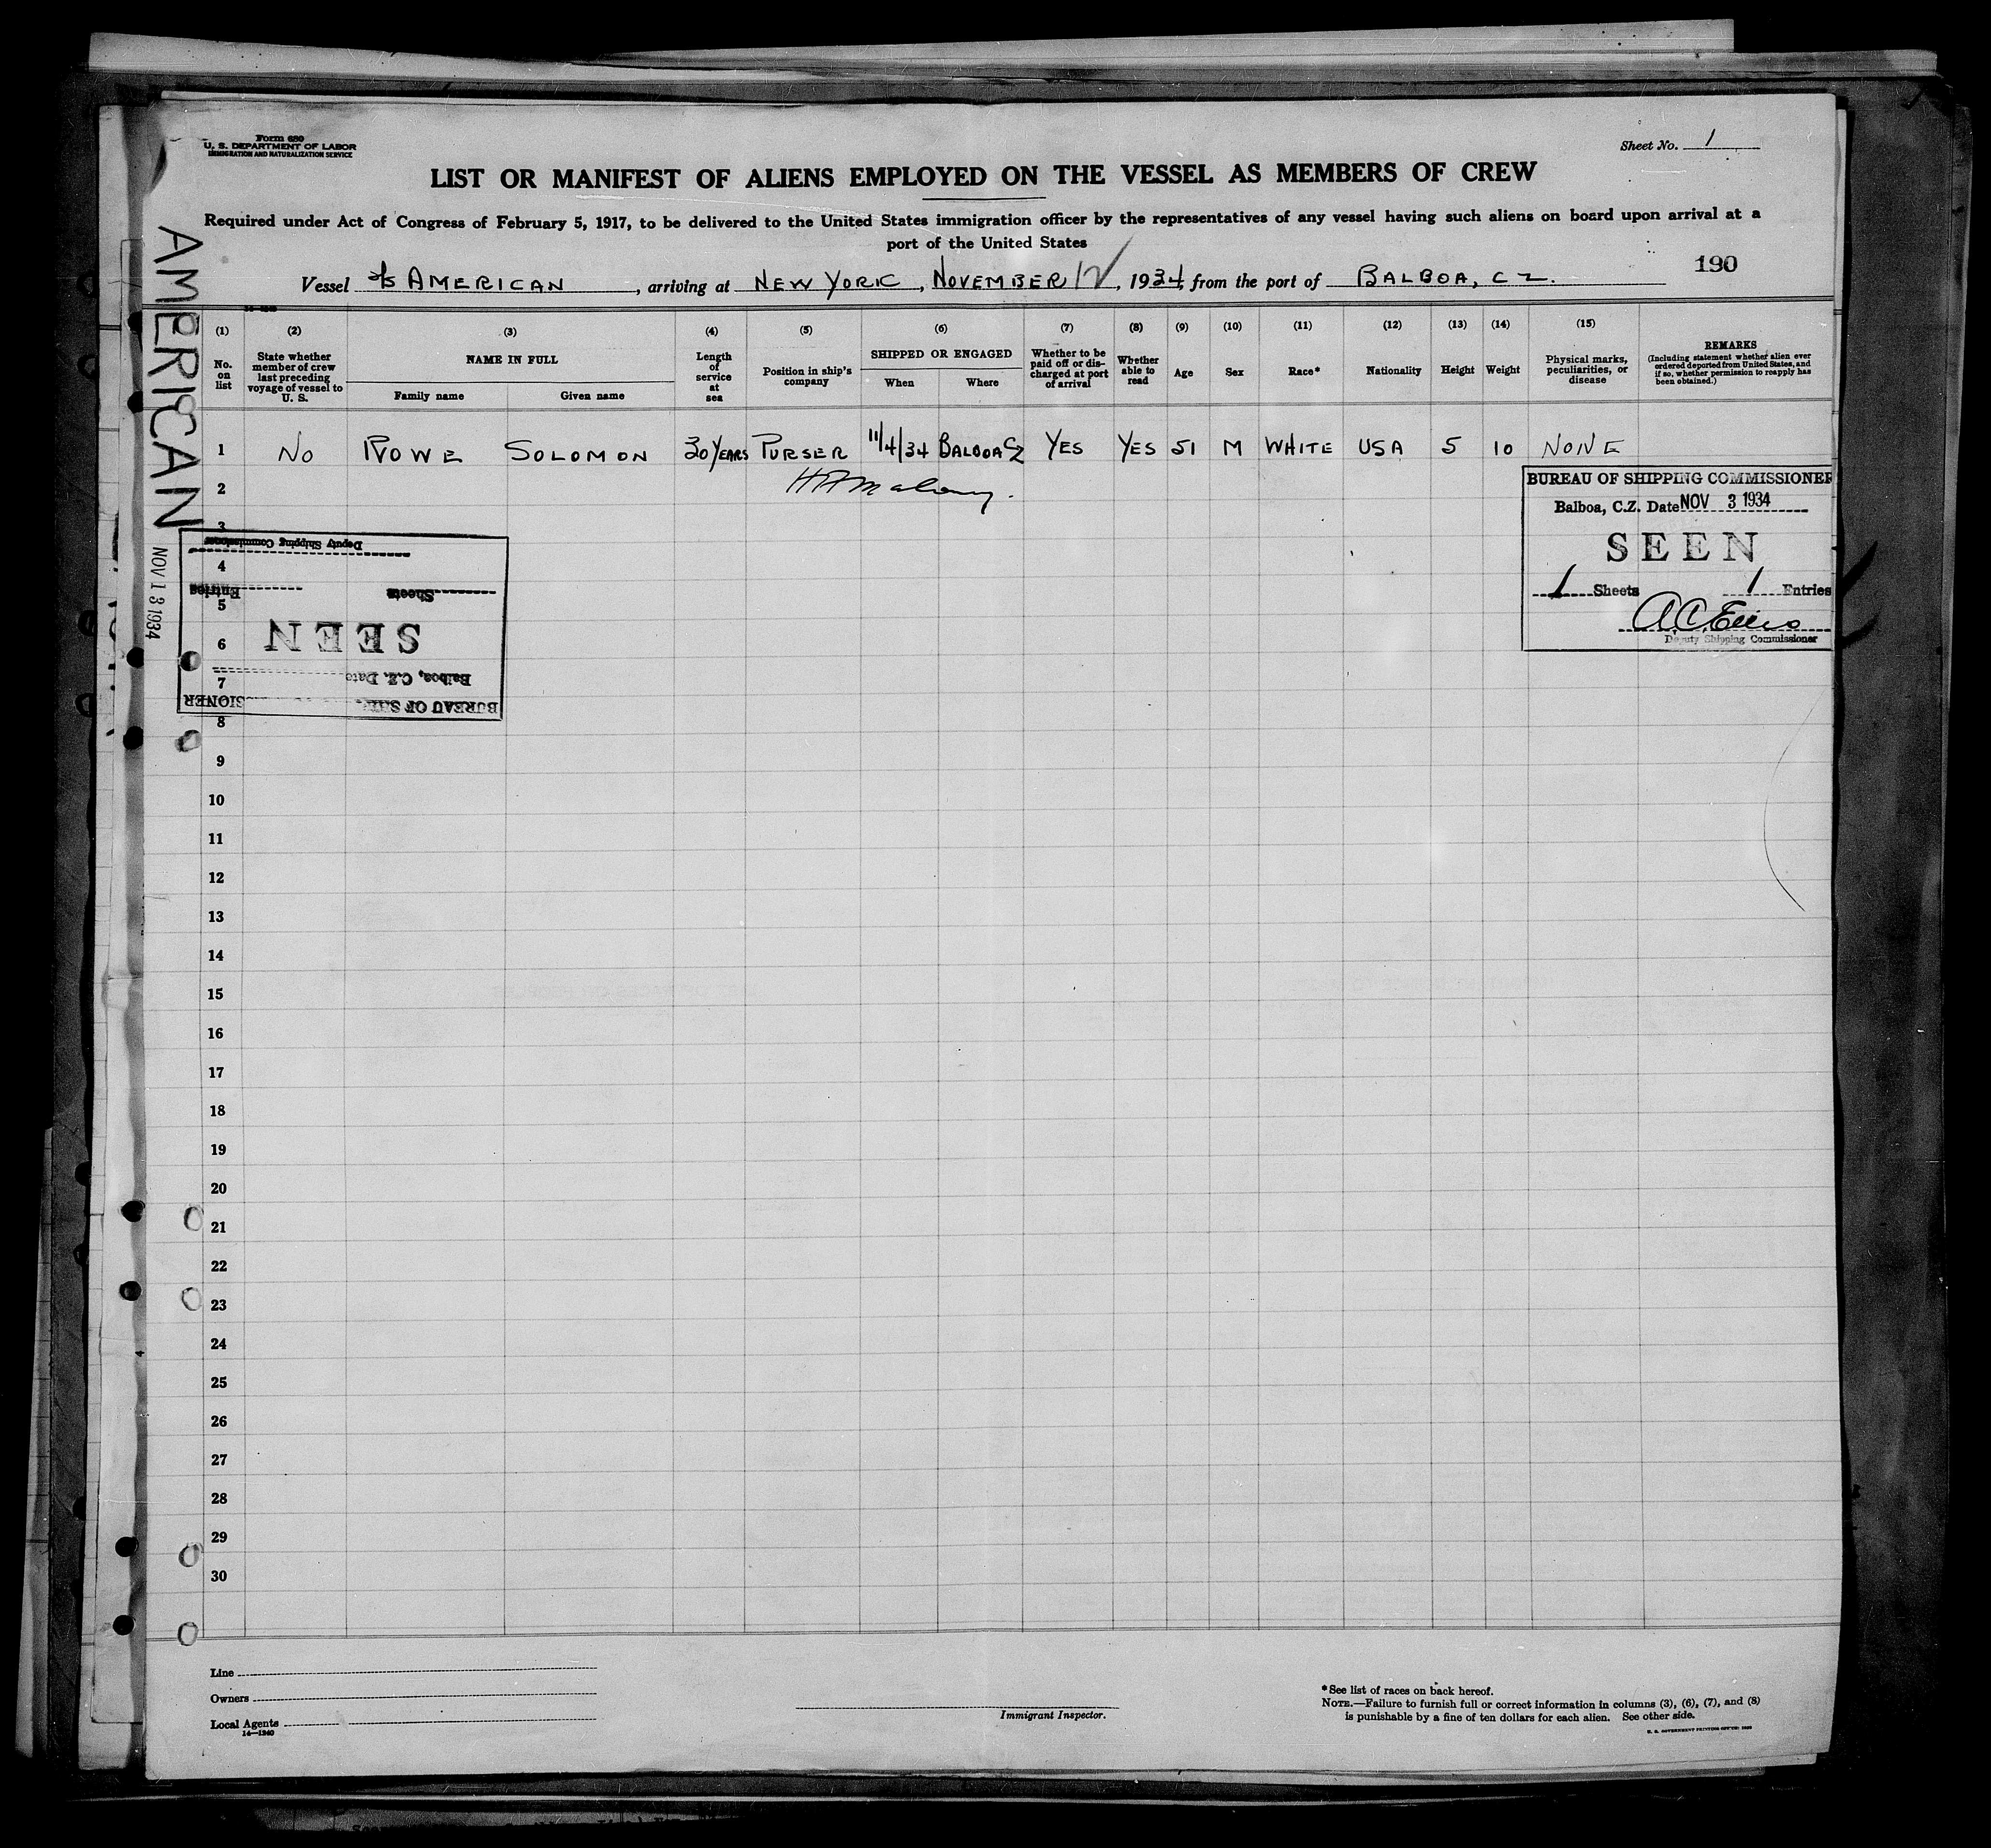 Form 680
U. S. DEPARTMENT OF LABOR
IMMIGRATION AND NATURALIZATION SERVICE
Sheet No. 1
LIST OR MANIFEST OF ALIENS EMPLOYED ON THE VESSEL AS MEMBERS OF CREW
Required under Act of Congress of February 5, 1917, to be delivered to the United States immigration officer by the representatives of any vessel having such aliens on board upon arrival at a
port of the United States
190
Vessel S/S AMERICAN, arriving at NEW YORK, NOVEMBER 12, 1934, from the port of BALBOA, C Z.
AMERICAN
NOV 13 1934
(1) (2) (3) (4) (5) (6) (7) (8) (9) (10) (11) (12) (13) (14) (15)
No. on list
State whether member of crew last preceding voyage of vessel to U. S.
NAME IN FULL
Family name
Given name
Length of service at sea
Position in ship's company
SHIPPED OR ENGAGED
When
Where
Whether to be paid off or discharged at port of arrival
Whether able to read
Age
Sex
Race*
Nationality
Height
Weight
Physical marks, peculiarities, or disease
REMARKS
(Including statement whether alien ever ordered deported from United States, and if so, whether permission to reapply has been obtained.)
1 NO ROWE SOLOMON 30 YEARS PURSER 11/4/34 BALBOA CZ YES YES 51 M WHITE USA 5 10 NONE
2
3
4
5
6
7
8
9
10
11
12
13
14
15
16
17
18
19
20
21
22
23
24
25
26
27
28
29
30
BUREAU OF SHIPPING COMMISSIONER
Balboa, C.Z. Date NOV 3 1934
SEEN
1 Sheets 1 Entries
Deputy Shipping Commissioner
BUREAU OF SHIPPING COMMISSIONER
Balboa, C.Z. Date
SEEN
Sheets Entries
Deputy Shipping Commissioner
Line
Owners
Local Agents
14—1240
Immigrant Inspector.
*See list of races on back hereof.
NOTE.—Failure to furnish full or correct information in columns (3), (6), (7), and (8)
is punishable by a fine of ten dollars for each alien. See other side.